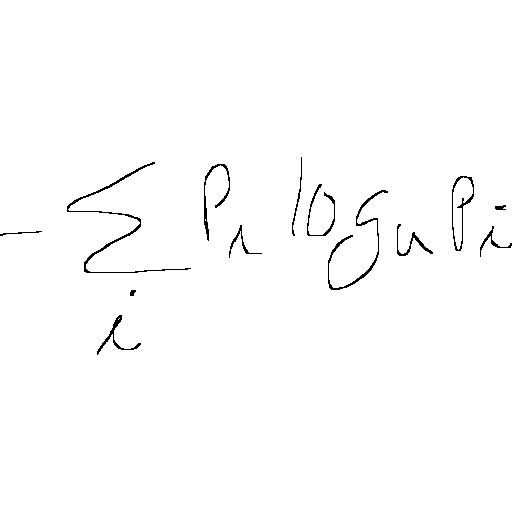 $-\sum_{i} P_i \log_n P_i$